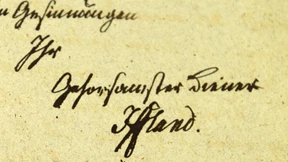 n Gesinnungen
Ihr
Gehorsamster Diener
Iffland.